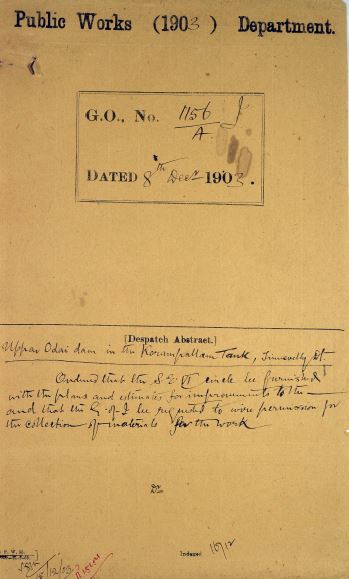 Public Works (1903) Department.
G.O., No. 1156 I
A
DATED 8th Decr 1903.
[Despatch Abstract.]
Uppar Odai dam in the Korampallam Tank, Tinnevelly Dt.
Ordered that the S.E. VI circle be furnished
with the plans and estimates for improvements to the
and that the G of I be requested to wire permission for
the collection of materials for the work
Indexed 16/12